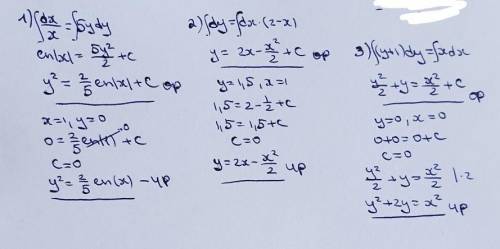 1) ∫dx/x = ∫5ydy
en|x| = 5y²/2 + c
y² = 2/5 en|x| + C ор
x=1, y=0
0 = 2/5 en|1| + C
0
C=0
y² = 2/5 en(x) – чр
2) ∫dy = ∫dx·(2-x)
y = 2x - x²/2 + C ор
y=1,5, x=1
1,5 = 2 - 1/2 + C
1,5 = 1,5 + C
C=0
y = 2x - x²/2 чр
3) ∫(y+1)dy = ∫xdx
y²/2 + y = x²/2 + C ор
y=0, x=0
0+0=0+C
C=0
y²/2 + y = x²/2 |·2
y² + 2y = x² чр